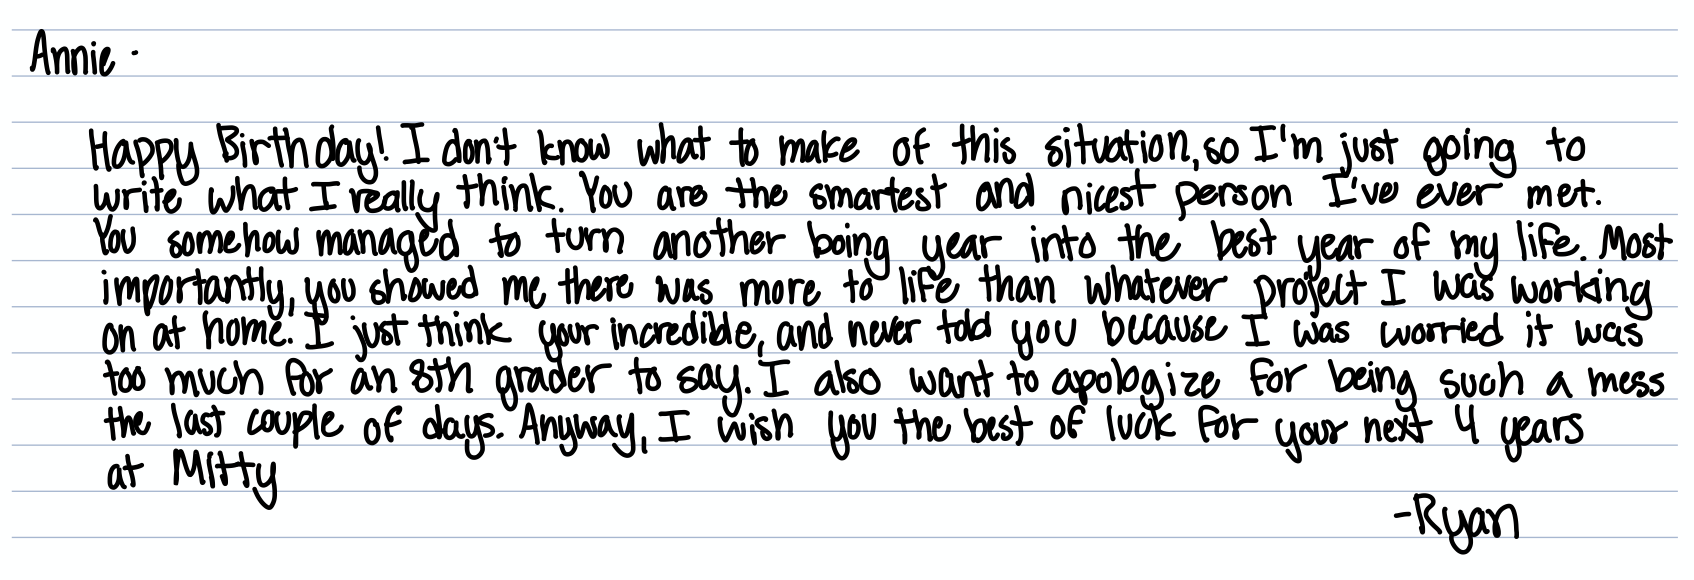 Annie -
Happy Birthday! I don't know what to make of this situation, so I'm just going to
write what I really think. You are the smartest and nicest person I've ever met.
You somehow managed to turn another boing year into the best year of my life. Most
importantly, you showed me there was more to life than whatever project I was working
on at home. I just think your incredible, and never told you because I was worried it was
too much for an 8th grader to say. I also want to apologize for being such a mess
the last couple of days. Anyway, I wish you the best of luck for your next 4 years
at Mitty
-Ryan